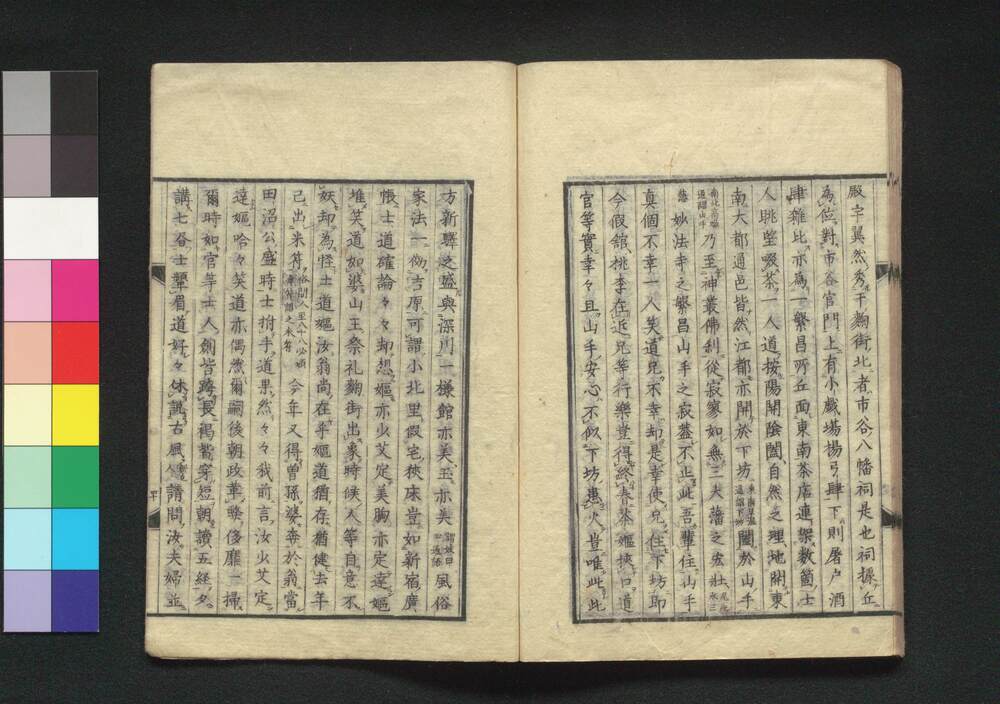 殿宇翼然秀于麴街北者市谷八幡祠是也祠據丘
為位對市谷官門上有小戯場揚弓肆下則屠戸酒
肆雜比亦為一繁昌所丘面東南茶店連架数箇士
人眺望啜茶一人道按陽開陰闔自然之理地開東
南大都通邑皆然江都亦開於下坊東南卑濕通謂下坊闔於山手
西北高燥通謂山手乃至神叢佛刹從寂寥如無三夫藩之宏壯
藩妙法寺之繁昌山手之寂蓋不止此吾輩住山手
真個不幸一人笑道兄不幸却是幸使兄住下坊即
今假舘桃李在近兄等行樂豈得終春茶嫗挾口道
官等實幸々且山手安心不似下坊患火豈唯此此
方新驛之盛與深川一樣館亦美玉亦美風俗
家法一倣吉原可謂小北里假宅狹床豈如新宿廣
悵士道確論々々却想嫗亦少艾定美胸亦定達嫗
堆笑道如婆山王祭礼麴街出象時候人等自意不
妖却為怪士道嫗汝翁尚在乎嫗道猶存猶健去年
已出米符俗間人至八十八必頒今年又得曽孫婆毒於翁當
田沼公盛時士拊手道果然々々我前言汝少艾定
達嫗哈々笑道亦偶然爾嗣後朝政革弊侈靡一掃
爾時如官等士人劍皆跨長褐鬻穿短朝讀五經夕
講七書士顰眉道好々休説古風人請問汝夫婦並